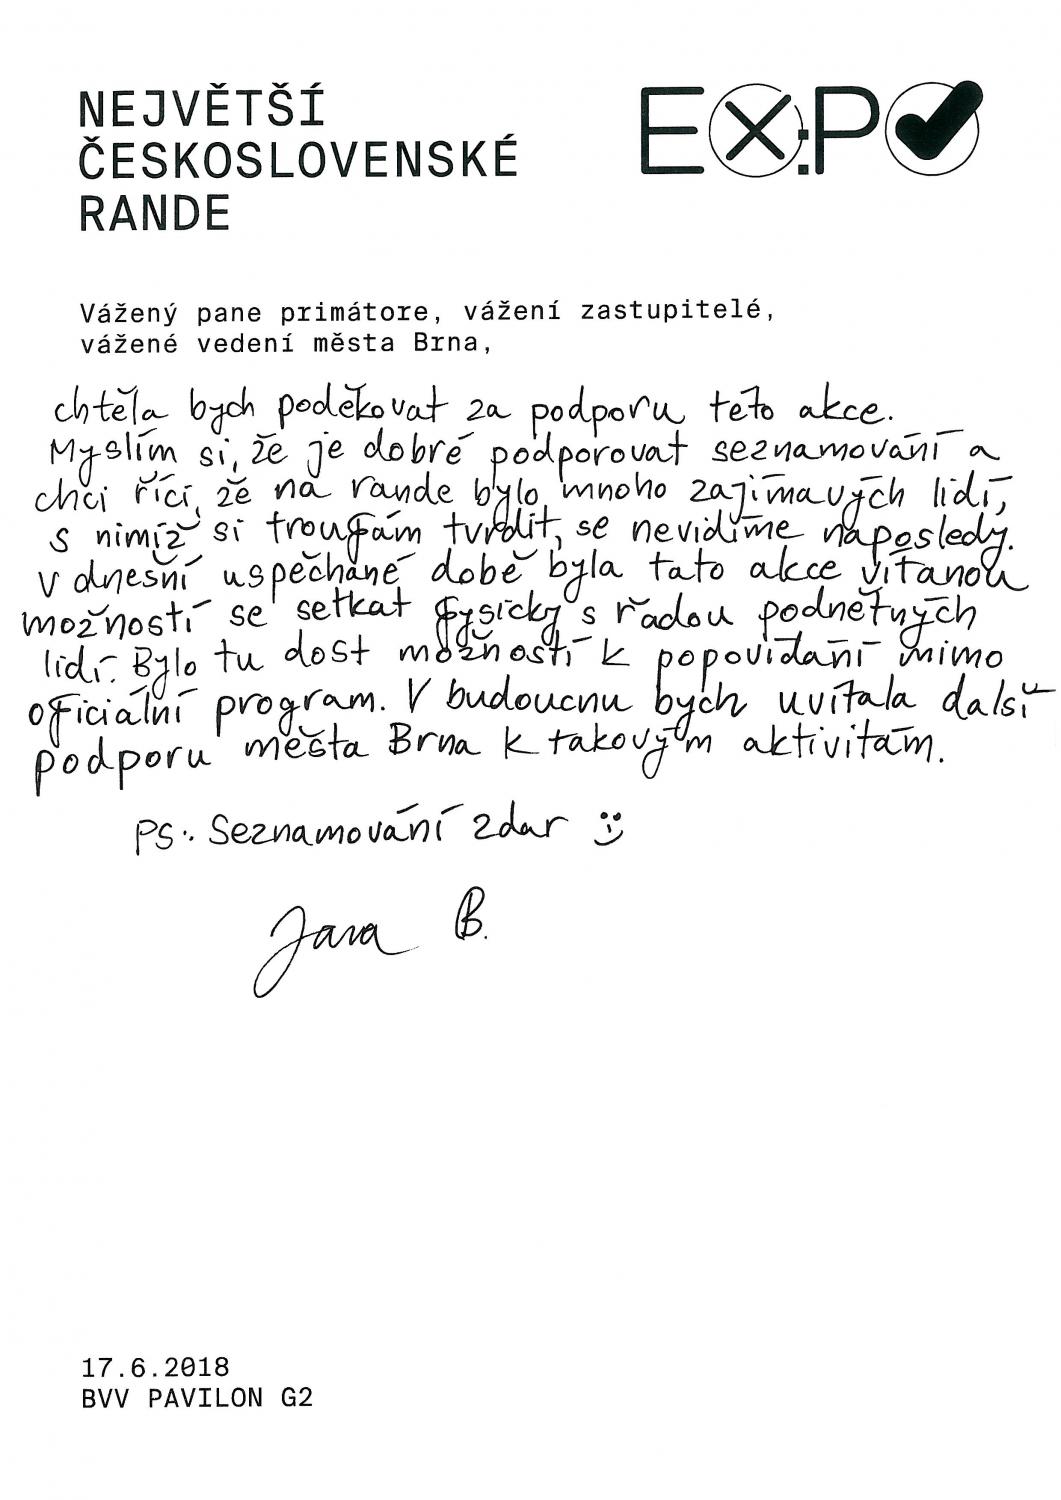 NEJVĚTŠÍ
ČESKOSLOVENSKÉ
RANDE
EX:PO
Vážený pane primátore, vážení zastupitelé,
vážené vedení města Brna,
chtěla bych poděkovat za podporu této akce.
Myslím si, že je dobré podporovat seznamování a
chci říci, že na rande bylo mnoho zajímavých lidí,
s nimiž si troufám tvrdit, se nevidíme naposledy.
V dnešní uspěchané době byla tato akce vítanou
možností se setkat fysicky s řadou podnětných
lidí. Bylo tu dost možností k popovídání mimo
oficiální program. V budoucnu bych uvítala další
podporu města Brna k takovým aktivitám.
PS: Seznamování zdar :)
Jana B.
17.6.2018
BVV PAVILON G2